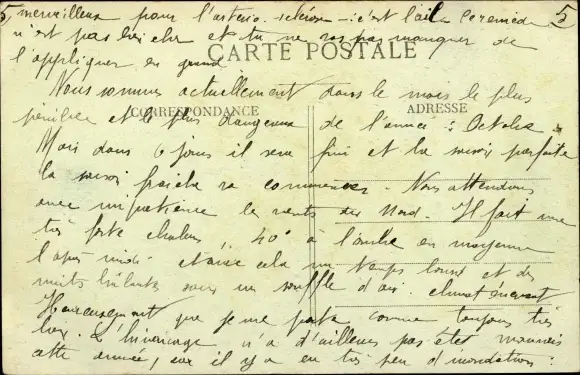 5 merveilleux pour l'arterio-sclérose - c'est l'ail. Ce remède 5
n'est pas bien cher et tu ne vas pas manquer de
CARTE POSTALE
l'appliquer en grand
Nous sommes actuellement dans le mois le plus
CORRESPONDANCE ADRESSE
pénible et le plus dangereux de l'année : Octobre.
Mais dans 6 jours il sera fini et la saison parfaite
la saison fraiche va commencer. Nous attendons
avec impatience les vents du Nord. Il fait une
très forte chaleur, 40° à l'ombre en moyenne
l'après-midi et avec cela un temps lourd et des
nuits brûlantes sans un souffle d'air. climat énervant
Heureusement que je me porte comme toujours très
bien. L'hivernage n'a d'ailleurs pas été mauvais
cette année, car il y a eu très peu d'inondations.